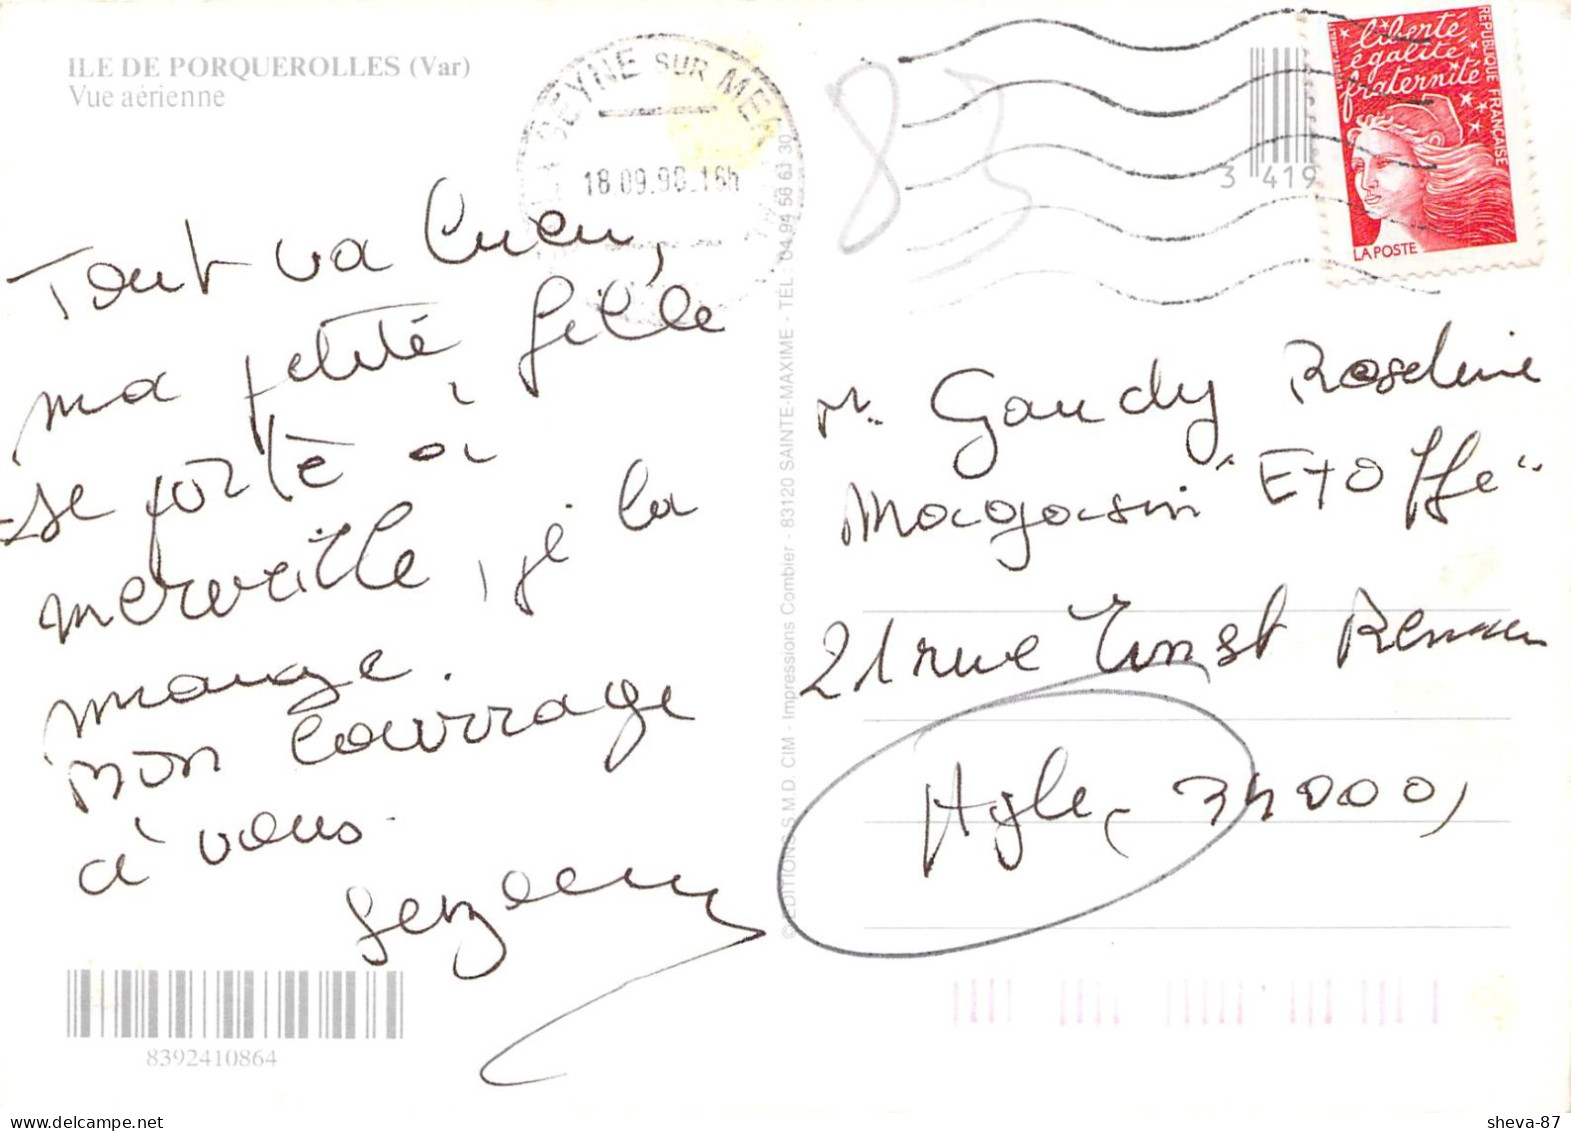 ILE DE PORQUEROLLES (Var)
Vue aérienne
SEYNE SUR MER
18.09.98.16h
Tout va bien,
ma petité fille
se portè à
merveille, je la
mange.
mon courrage
à vous.
83
3 419
liberté
égalité
fraternité
REPUBLIQUE FRANÇAISE
LA POSTE
Gaudy Roseline
Magasin "Etoffe"
21 rue Ernst Renan
34000
© EDITIONS S.M.D. CIM - Impressions Combier - 83120 SAINTE-MAXIME - TÉL : 04 94 56 61 30
8392410864
sheva-87